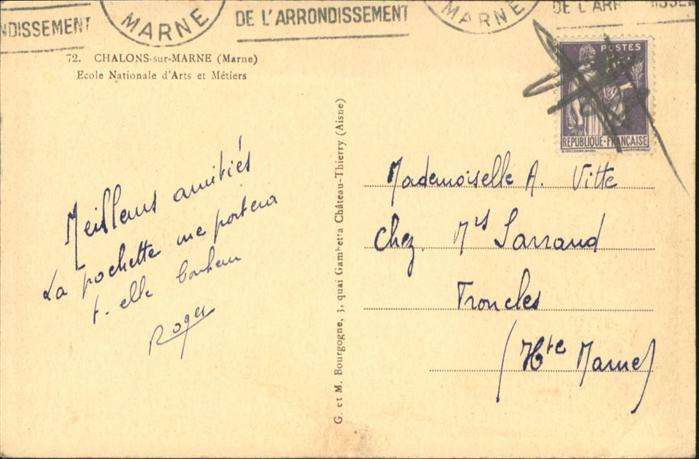 NDISSEMENT
MARNE
DE L'ARRONDISSEMENT
MARNE
DE L'ARR
ISSEMEN
72. CHALONS-sur-MARNE (Marne)
Ecole Nationale d'Arts et Métiers
Meilleurs amitiés
La pochette me portera
t. elle bonheur
Roger
G. et M. Bourgogne, 3, quai Gambetta Château-Thierry (Aisne)
POSTES
REPUBLIQUE-FRANÇAISE
Mademoiselle A. Vitte
Chez Mrs Sarrand
Froncles
(Hte Marne)